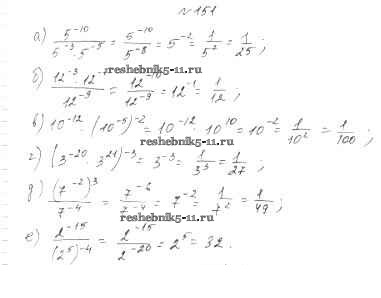 № 151
а) 5^-10 / (5^-3 · 5^-5) = 5^-10 / 5^-8 = 5^-2 = 1/5^2 = 1/25 ;
reshebnik5-11.ru
б) 12^-3 · 12^ / 12^-9 = 12^-10 / 12^-9 = 12^-1 = 1/12 ;
в) 10^-12 · (10^-5)^-2 = 10^-12 · 10^10 = 10^-2 = 1/10^2 = 1/100 ;
reshebnik5-11.ru
г) (3^-20 · 3^21)^-3 = 3^-3 = 1/3^3 = 1/27 ;
д) (7^-2)^3 / 7^-4 = 7^-6 / 7^-4 = 7^-2 = 1/7^2 = 1/49 ;
reshebnik5-11.ru
е) 2^-15 / (2^5)^-4 = 2^-15 / 2^-20 = 2^5 = 32 .